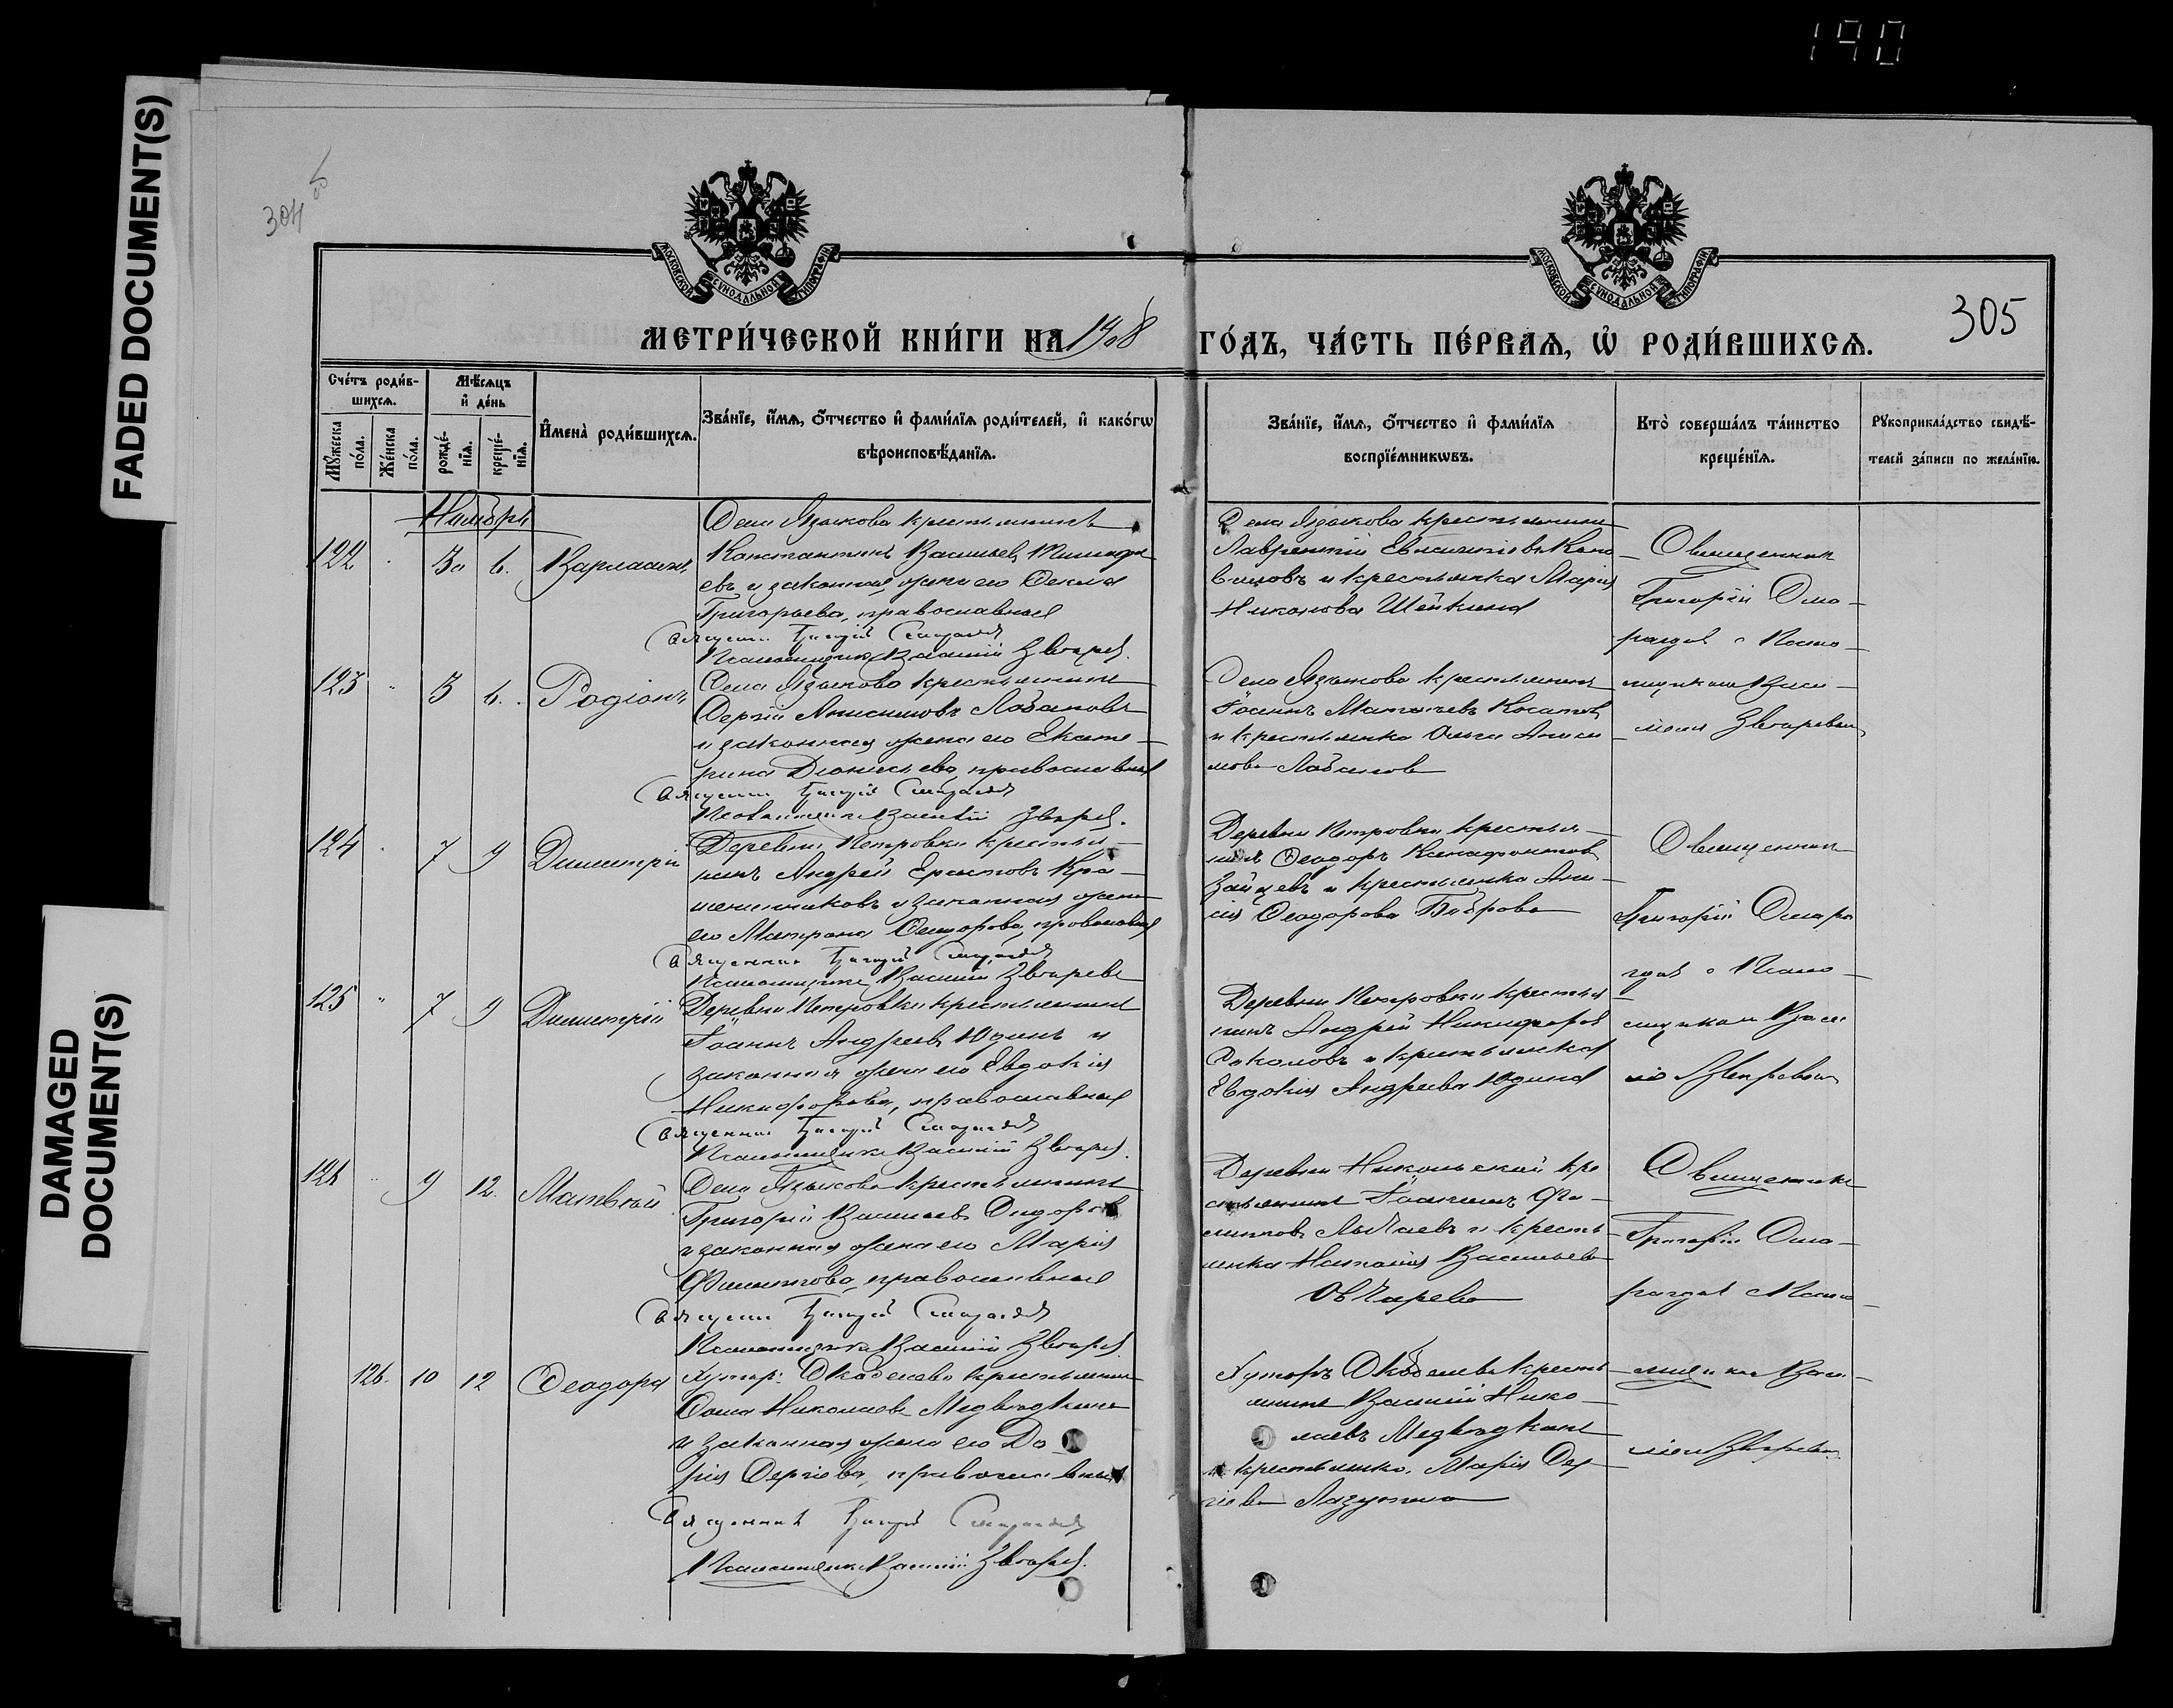 190
FADED DOCUMENT(S)
DAMAGED
DOCUMENT(S)
304
305
МОСКОВСКОЙ СѴНОДАЛЬНОЙ ТИПОГРАФІИ
МОСКОВСКОЙ СѴНОДАЛЬНОЙ ТИПОГРАФІИ
МЕТРИ́ЧЕСКОЙ КНИ́ГИ НА 1908
ГО́ДЪ, ЧА́СТЬ ПЕ́РВАѦ, Ѡ҆ РОДИ́ВШИХСѦ.
Сче́тъ роди́в-
шихсѧ.
Мѹ́жеска
по́ла.
Же́нска
по́ла.
Мѣ́сѧцъ
и҆ де́нь
рожде́-
нїѧ.
креще́-
нїѧ.
И҆мена̀ роди́вшихсѧ.
Зва́нїе, и҆́мѧ, ѻ҆́тчество и҆ фами́лїѧ роди́телей, и҆ како́гѡ
вѣроисповѣ́данїѧ.
Зва́нїе, и҆́мѧ, ѻ҆́тчество и҆ фами́лїѧ
воспрїе́мникѡвъ.
Кто̀ соверша́лъ та́инство
креще́нїѧ.
Рѹкоприкла́дство свидѣ́-
телей за́писи по жела́нїю.
Ноябрь
122 6. Варлаамъ
Села Языкова крестьянинъ
Константинъ Васильевъ
евъ и законная жена его Фекла
Григорьева, православные
Священникъ Григорій Смарагдовъ
Псаломщикъ Василій Звѣревъ.
Села Языкова крестьянинъ
Лаврентій
и крестьянка Марія
Шейкина
Священникъ
Григорій Сма-
рагдовъ с Псало-
мщикомъ Васи-
ліемъ Звѣревымъ
123 " 3 6. Родіонъ
Села Языкова крестьянинъ
Сергій Анисимовъ Лобановъ
и законная жена его Екате-
рина Діонисіева, православные
Священникъ Григорій Смарагдовъ
Псаломщикъ Василій Звѣревъ.
Села Языкова крестьянинъ
Іоаннъ
и крестьянка Ольга Аниси-
мова Лобанова
124 7 9 Димитрій
Деревни Петровки крестья-
нинъ Андрей
и законная жена
его Матрона православные
Священникъ Григорій Смарагдовъ
Псаломщикъ Василій Звѣревъ
Деревни Петровки крестья-
нинъ Ѳеодоръ Ксенофонтовъ
Зайцевъ и крестьянка
Ѳеодорова Боброва
Священникъ
Григорій Смара-
гдовъ с Псало-
мщикомъ Васи-
ліемъ Звѣревымъ
125 " 7 9 Димитрій
Деревни Петровки крестьянинъ
Іоаннъ Андреевъ Юдинъ и
законная жена его Евдокія
Никифорова, православные
Священникъ Григорій Смарагдовъ
Псаломщикъ Василій Звѣревъ.
Деревни Петровки крестья-
нинъ Андрей Никифоровъ
Соколовъ и крестьянка
Евдокія Андреева Юдина
9 12. Матвей
Села Языкова крестьянинъ
Григорій Васильевъ Сидоровъ
и законная жена его Марія
Филиппова, православные
Священникъ Григорій Смарагдовъ
Псаломщикъ Василій Звѣревъ
Деревни Никольской кре-
стьянинъ Іоаннъ Фи-
липповъ и кресть-
янка Наталія Васильева
Овчарева
Священникъ
Григорій Сма-
рагдовъ с Псало-
мщикомъ Васи-
ліемъ Звѣревымъ
126. 10 12 Ѳеодора
Хутор. крестьянинъ
Ѳома Николаевъ Медвѣдкинъ
и законная жена его Да-
рія Сергіева, православные
Священникъ Григорій Смарагдовъ
Псаломщикъ Василій Звѣревъ.
Хуторъ кресть-
янинъ Василій Нико-
лаевъ Медвѣдкинъ
и крестьянка Марія Сер-
гіева